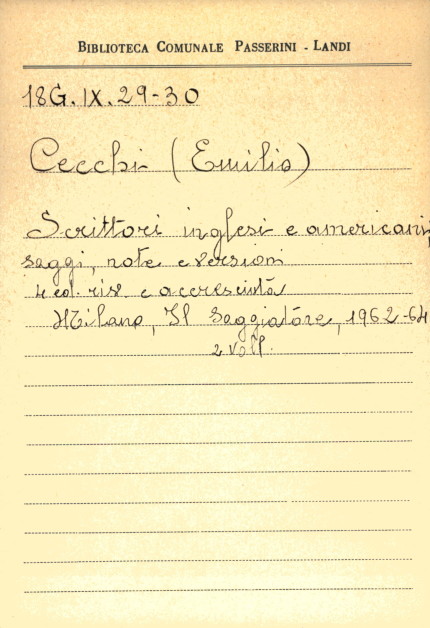 BIBLIOTECA COMUNALE PASSERINI - LANDI
18G.IX.29-30
Cecchi (Emilio)
Scrittori inglesi e americani,
saggi, note e versioni
4 ed. riv. e accresciuta
Milano, Il Saggiatore, 1962-64
2 voll.